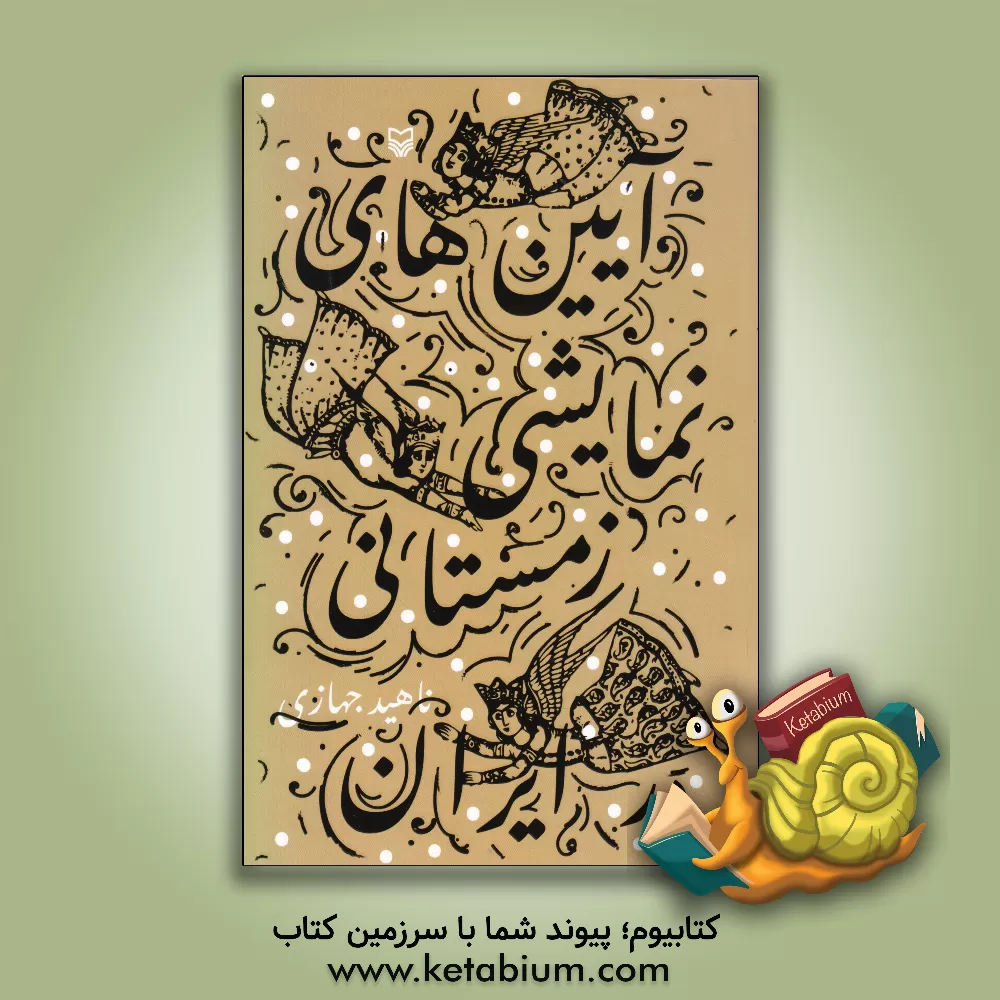 آیین های
نمایشی
زمستانی
ناهید جهازی
ایران
Ketabium
کتابیوم؛ پیوند شما با سرزمین کتاب
www.ketabium.com